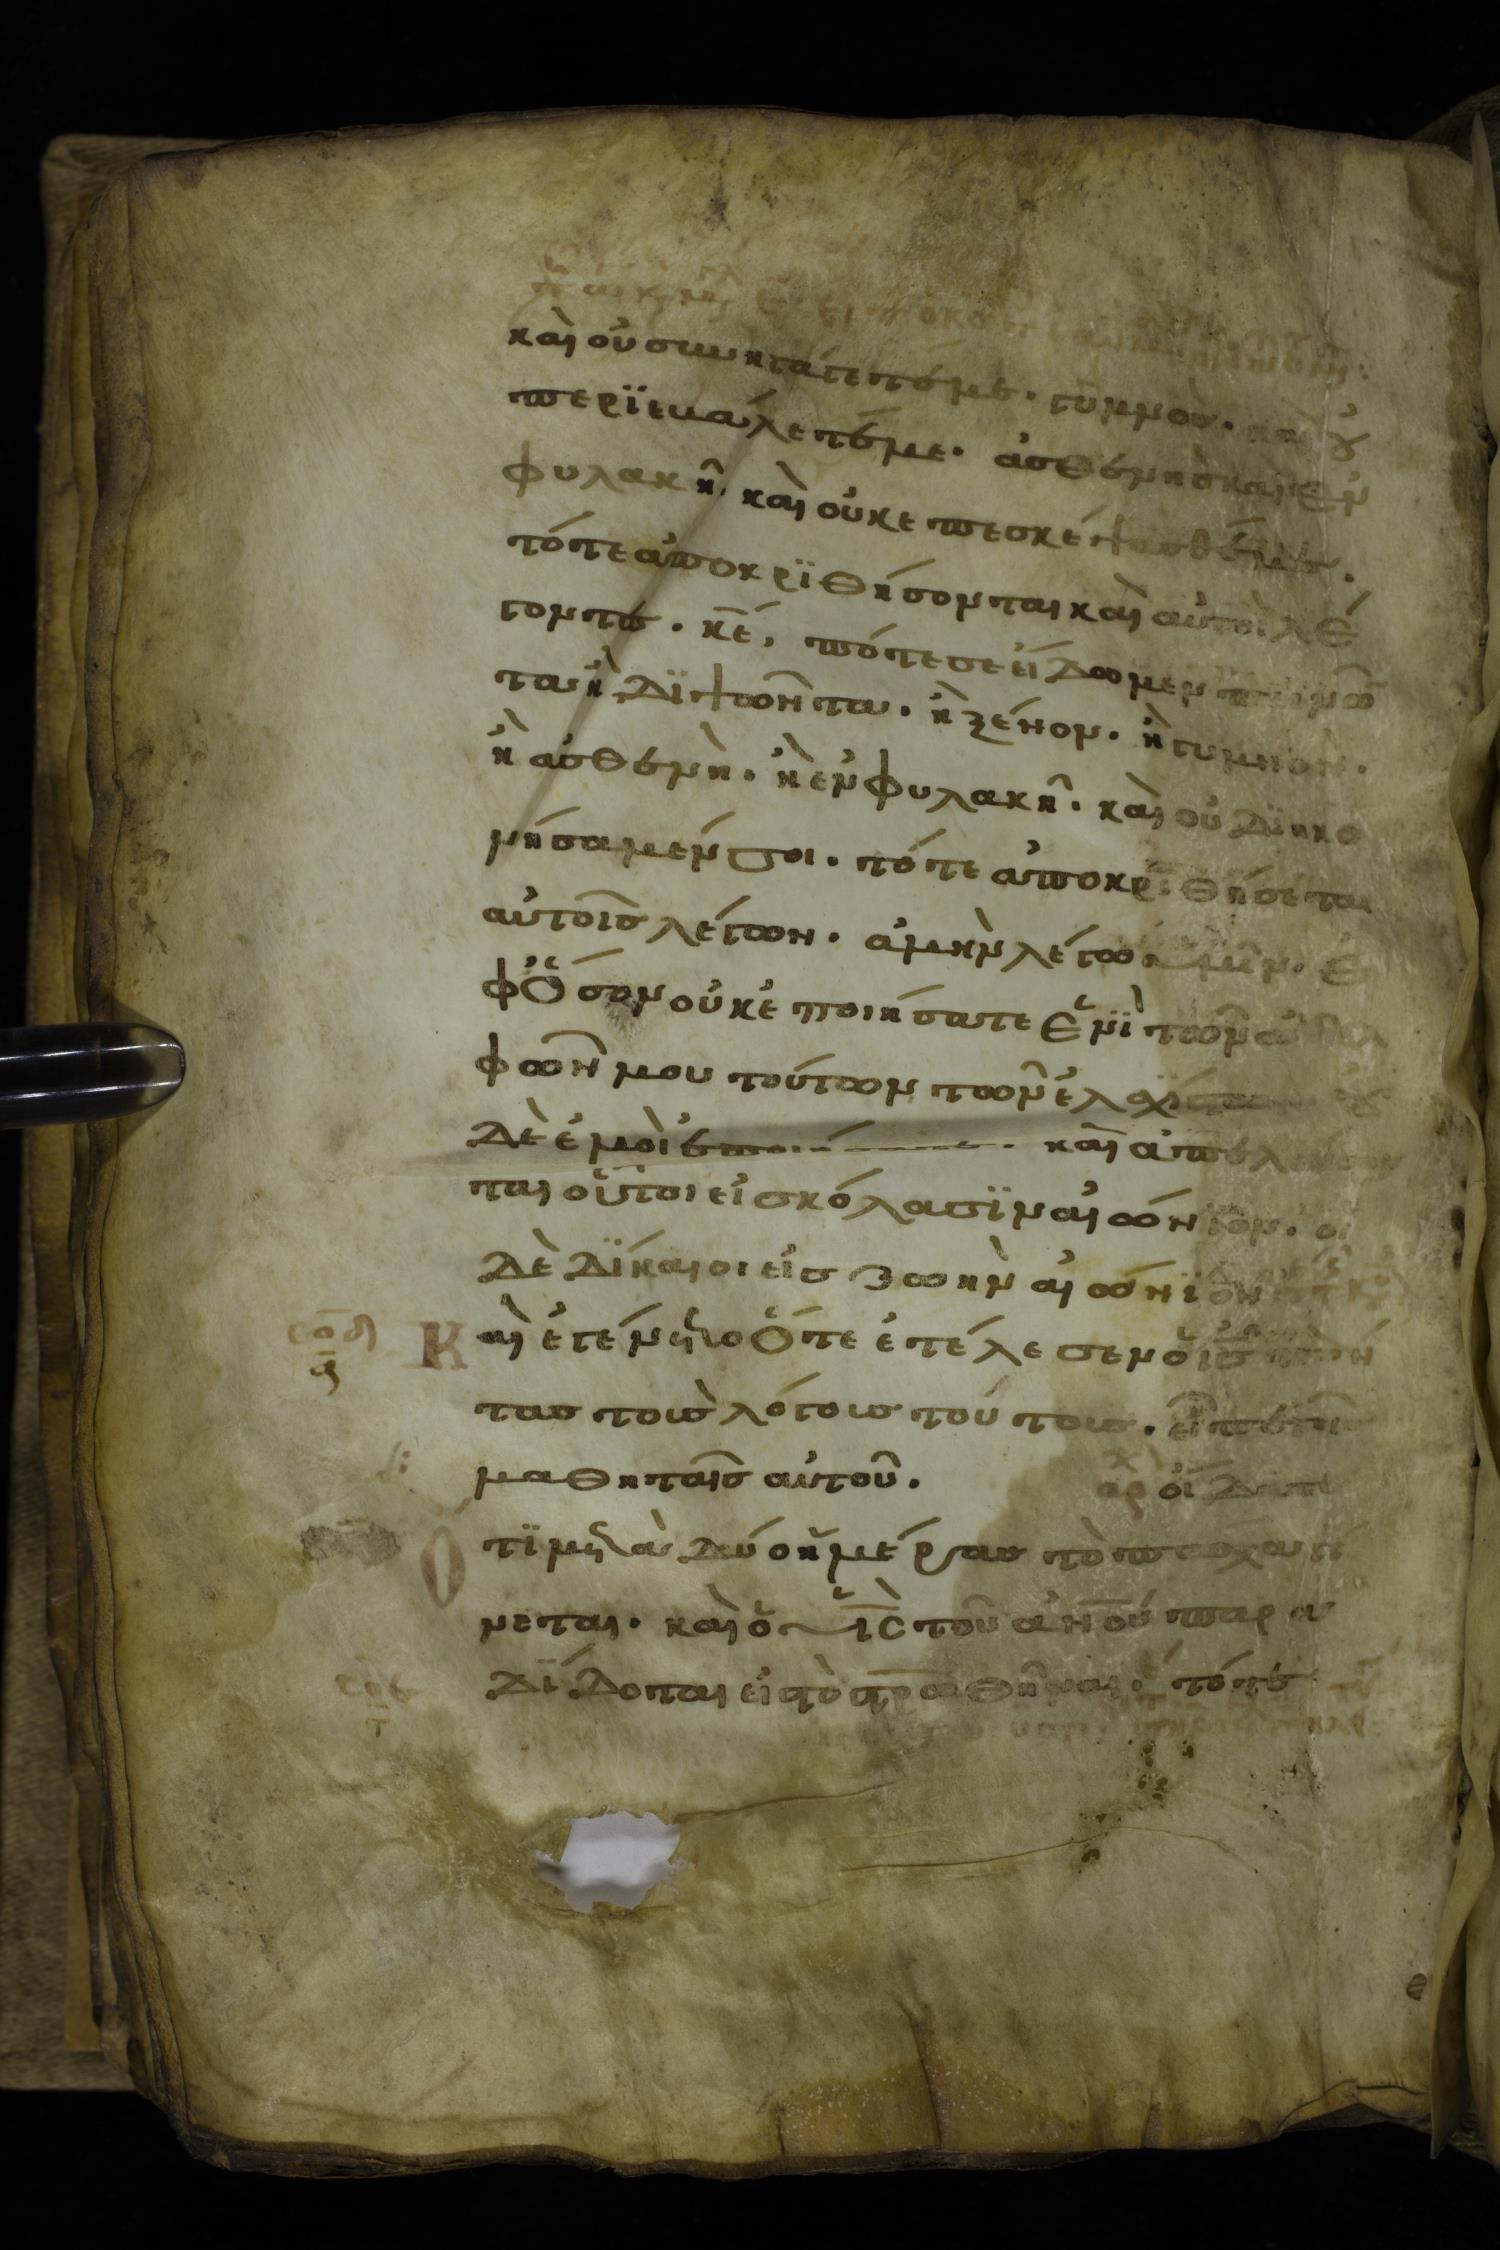 καὶ οὐ συνηγάγετέ με. γυμνὸς. καὶ οὐ
περϊεβάλετέ με. ἀσθενὴς καὶ ἐν
φυλακῆ, καὶ οὐκ ἐπεσκέψασθέ με.
τότε ἀποκρϊθήσονται καὶ αὐτοὶ λέ
γοντες. κ̅ε̅, πότε σε εἴδωμεν πεινῶν
τα ἢ δϊψῶντα. ἢ ξένον. ἢ γυμνὸν.
ἢ ἀσθενῆ. ἢ ἐν φυλακῆ. καὶ οὐ δϊηκο
νήσαμέν σοι. τότε ἀποκρϊθήσεται
αὐτοῖς λέγων. ἀμὴν λέγω ὑμῖν. ἐ
φ' ὅσον οὐκ ἐποιήσατε ἑνῒ τῶν ἀδελ
φῶν μου τούτων τῶν ἐλαχίστων οὐ
δὲ ἐμοὶ ἐποιήσατε. καὶ ἀπελεύσον
ται οὗτοι εἰς κόλασϊν αἰώνιον. οἱ
δὲ δΐκαιοι εἰς ζωὴν αἰώνϊον
Καὶ ἐγένετο ὅτε ἐτέλεσεν ὁ ι̅ς̅ πάν
τας τοὺς λόγους τούτους. εἶπεν τοῖς
μαθηταῖς αὐτοῦ. αρχ οἴδατε
Ὅτϊ μετὰ δύο ἡμέρας τὸ πάσχα γί
νεται. καὶ ὁ υ̅ι̅ς̅ τοῦ α̅ν̅ο̅υ̅ παρα
δΐδοται εἰς τὸ σ̅ρ̅ωθῆναι. τότε